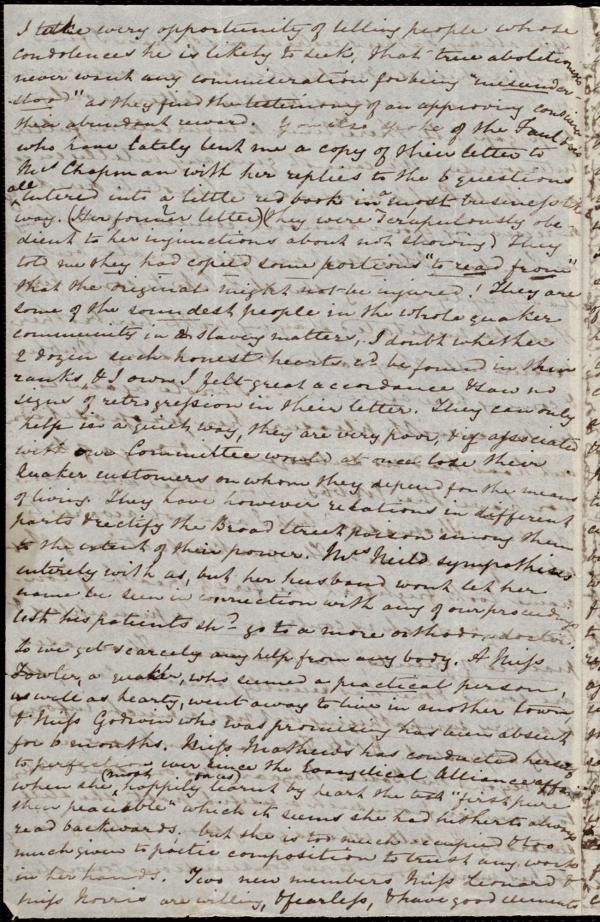 I take every opportunity of telling people whose
condolences he is likely to seek, that true abolitionists
never want any commiseration for being "misunder
stood" as they find the testimony of an approving conscience
their abundant reward. You also spoke of the
who have lately lent me a copy of their letter to
Mrs Chapman with her replies to the 6 questions
all entered into a little red book in most business like
way. (Her former letter) (they were scrupulously obe
dient to her injunctions about not showing) They
told me they had copied some portions "to read from"
that the original might not be injured! They are
some of the soundest people in the whole quaker
community in A slavery matters, I doubt whether
2 dozen such honest hearts cd be found in their
ranks, & I own I felt great accordance & saw no
signs of retrogression in their letter. They can only
help in a quiet way, they are very poor, & if associated
with our Committee would at once lose their
Quaker customers on whom they depend for the means
of living. They have however relations in different
parts & rectify the Broad Street poison among them
to the extent of their power. Mrs Neild sympathises
entirely with us, but her husband wont let her
name be seen in connection with any of our proceedgs
lest his patients shd go to a more orthodox doctor.
So we get scarcely any help from any body. A Miss
Fowler, a quaker, who seemed a practical person,
as well as hearty, went away to live in another town,
& Miss Godwin who was promising has been absent
for 6 months. Miss Mathews has conducted herself
to perfection ever since the Evangelical Alliance affair
when she (most happily for us) learnt by heart the text "first pure
then peaceable" which it seems she had hitherto always
read backwards, but she is too much occupied & too
much given to poetic composition to trust any work
in her hands. Two new members Miss Leonard &
Miss Norris are willing, & fearless, & have good elements